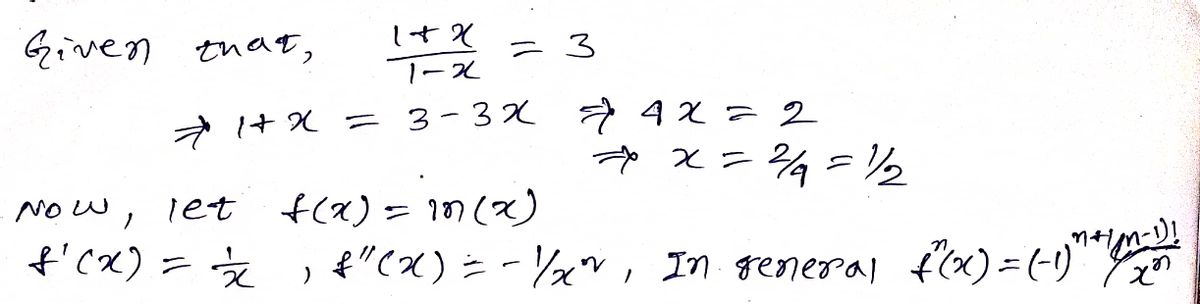 Given that, (1+x)/(1-x) = 3
⇒ 1+x = 3-3x ⇒ 4x = 2
⇒ x = 2/4 = 1/2
Now, let f(x) = ln(x)
f'(x) = 1/x , f''(x) = -1/x², In general fⁿ(x) = (-1)ⁿ⁺¹ (n-1)!/xⁿ